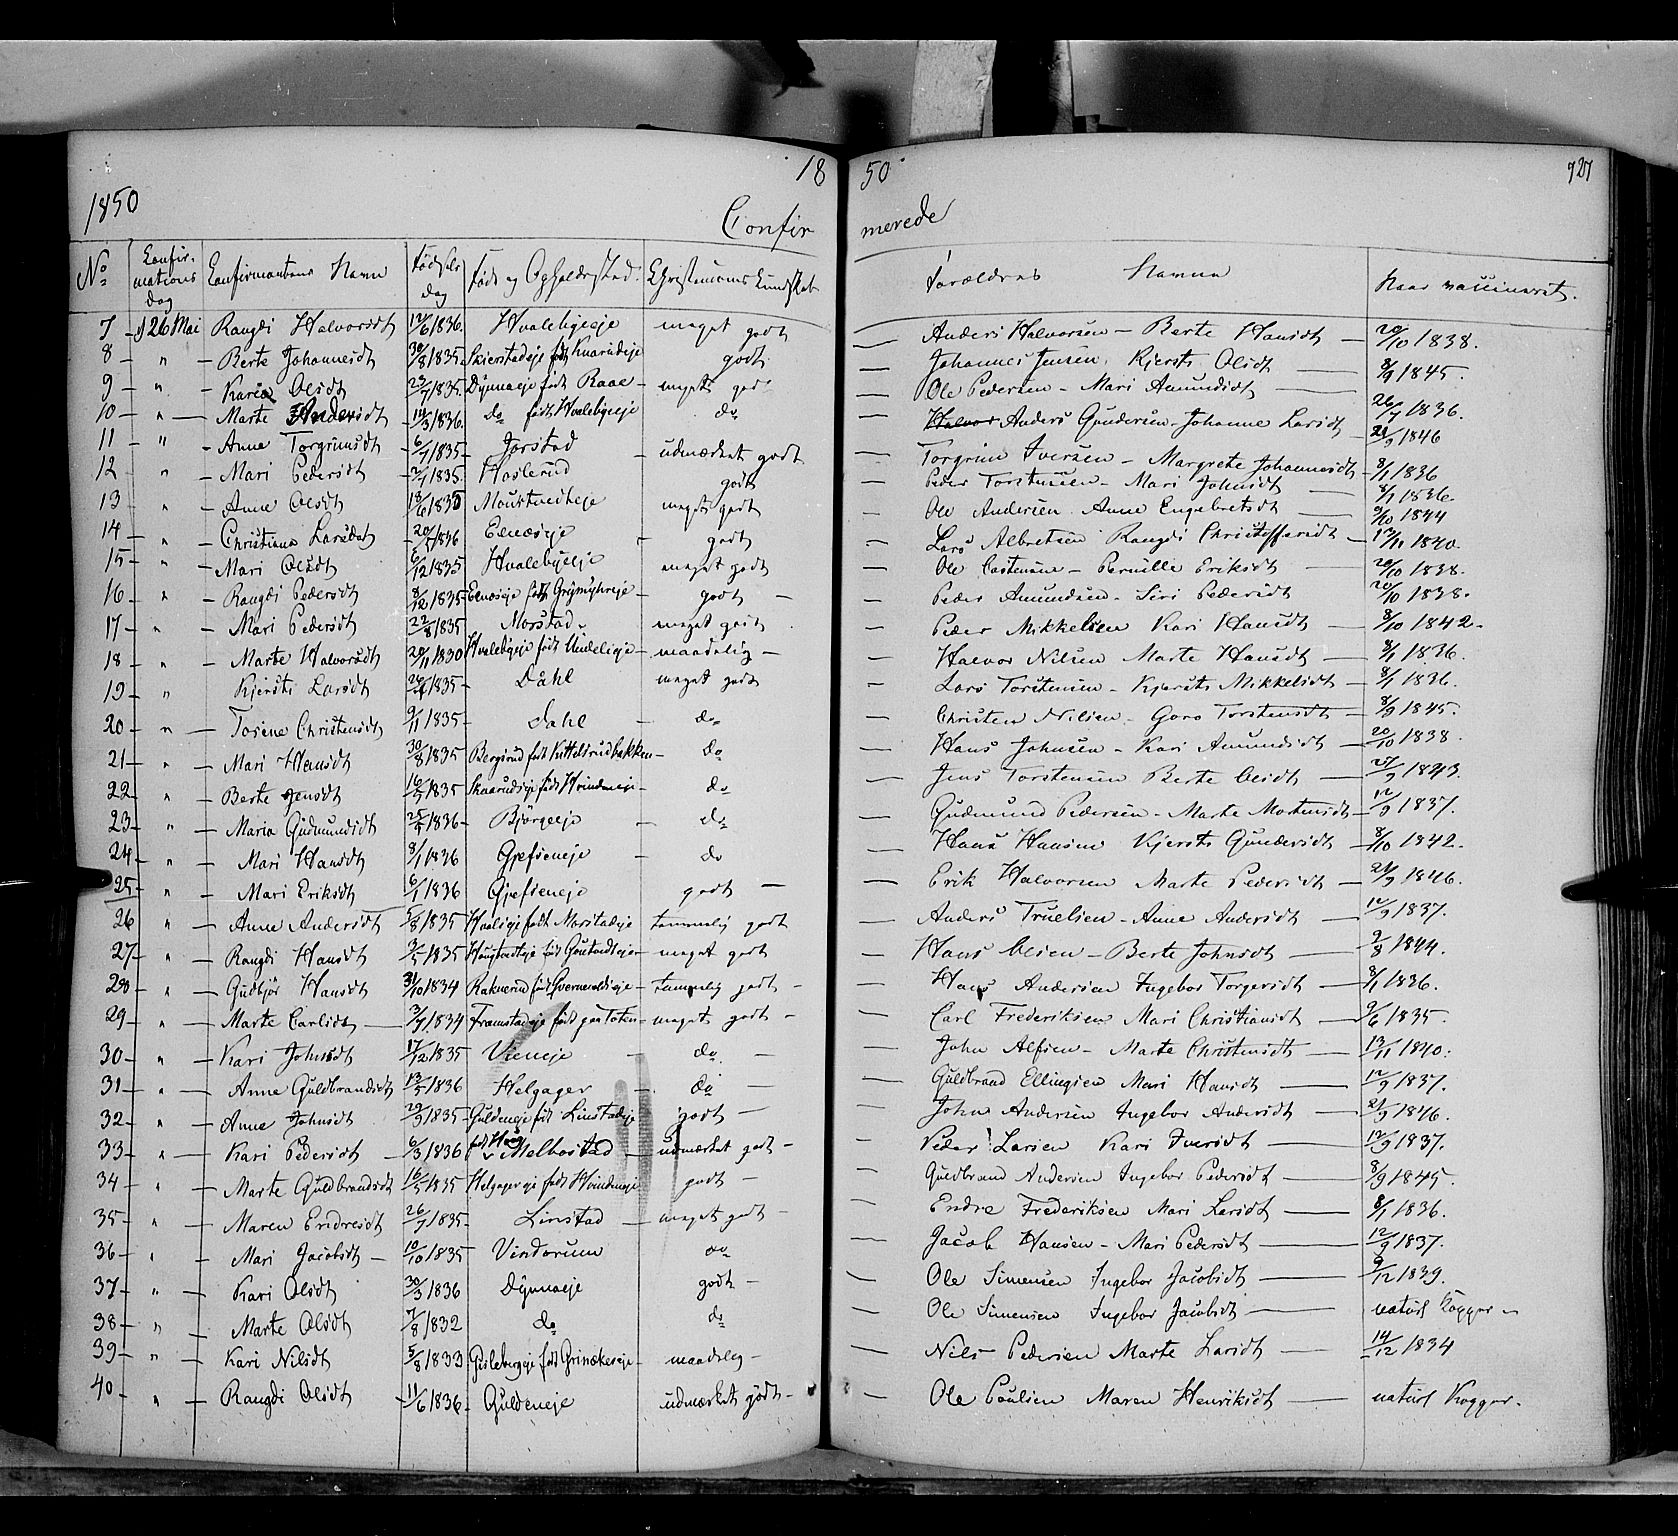 18 50
727
1850
Confirmerede
No Confirmations Dag Confirmantens Navn Fødsels dag Føde og Opholdssted Christendoms Kundskab Forældres Navne Naar vaccineret.
7 - d 26 Mai Rangdi Halvorsdt 12/6 1836. Hvalebyeeje meget godt Anders Halvorsen - Berte Hansdt 20/10 1838.
8 - " - Berte Johannesdt 30/8 1835. godt Johannes Jensen, Kjersti Olsdt 8/9 1845.
9 - " - Olsdt 23/7 1835. Dynnaeje født Raae - meget god Ole Pedersen - Mari Amundsdt
10 - " - Marte Andersdt 14/3 1836. do født Hvalebyeeje do Anders Gundersen - Johanne Larsdt 1836.
11 - " - Anne Torgrimsdt 6/7 1835 Jorstad - udmærket godt Torgrim Iversen - Margrete Johannesdt 1846
12 " - Mari Pedersdt 2/7 1835. Haslerud godt Peder Torstensen - Mari Johnsdt 8/1 1836
13 " - Anne Olsdt meget godt Ole Andersen. Anne Engebretsdt 8/1 1836.
14 - " - Christiane Larsdat 1836 Eenæseje - godt Lars Albretsen Rangdi Christoffersdt 9/10 1844
15 - " - Mari Olsdt 5/12 1835 Hvalebyeeje meget godt Ole Castensen - Pernille Eriksdt 13/11 1840.
16 " - Rangdi Pedersdt 8/12 1835 - Eenæseje født - godt - Peder Amundsen - Siri Pedersdt 20/10 1838.
17 - " - Mari Pedersdt 22/8 1835 Morstad meget godt Peder Mikkelsen Kari Hansdt 8/10 1842 -
18 - " - Marte Halvorsdt 20/11 1830 Hvalebyeje født Undelieje - maadelig - Halvor Nilsen Marte Hansdt 8/1 1836.
19 - " Kjersti Larsdt 1835 - Dahl meget godt Lars Torstensen - Kjersti Mikkelsdt 8/1 1836.
20 - " - Tosene Christensdt 9/11 1835 - Dahl - do Christen Nilsen - Goro Torstensdt 8/9 1845.
21 - " - Mari Hansdt 30/8 1835 Bergsrud født Kittelsrudbakken - do Hans Johnsen - Kari Amundsdt 20/10 1838.
22 - " - Berte Jensdt 16/5 1835 Skaarudeje født Hvindeneje - do Jens Torstensen Berte Olsdt 1843.
23 - " - Maria Gudmundsdt 1836 - Bjørgeeje - do Gudmund Pedersen - Marte Mortensdt 12/9 1837.
24 - " - Mari Hansdt 8/1 1836 Gjefseneje - do Hans Hansen Kjersti Gundersdt 8/10 1842.
25 " - Mari Eriksdt 6/1 1836 Gjefseneje godt - Erik Halvorsen Marte Pedersdt 21/9 1846.
26 " - Anne Andersdt 5/8 1835 født Morstadeje temmelig godt Anders Truelsen - Anne Andersdt 12/9 1837.
27 - " - Rangdi Hansdt 3/5 1835 - meget godt Hans Olsen - Berte Johnsdt 2/8 1844.
28 " - Gudbjør Hansdt 31/10 1834 Raknerud født - temmelig godt - Hans Andersen Ingebor Torgersdt 8/1 1836.
29 - " - Marte Carlsdt 3/7 1834 Framstadeje født paa Toten - meget godt - Carl Frederiksen Mari Christiansdt 9/6 1835.
30 - " - Kari Johnsdt 17/12 1835 Vieneje - do - John Alfsen - Marte Christensdt 13/11 1840:
31 - " - Anne Guldbrandsdt 13/5 1836 Helgager - do - Guldbrand Ellingsen Mari Hansdt 12/9 1837.
32 - " - Anne Johnsdt 29/9 1835 - Guldeneje født Linstadeje godt - John Andersen Ingebor Andersdt 21/9 1846.
33 - " - Kari Pedersdt 6/3 1836 Melbostad - udmærket godt - Peder Larsen Kari Iversdt 12/9 1837.
34 - " - Marte Guldbrandsdt 16/5 1835 Helgagereje født Hvindeneje godt - Guldbrand Andersen Ingebor Pedersdt 8/9 1845.
35 - " - Maren Endresdt 26/7 1835 - Linstad - meget godt - Endre Frederiksen Mari Larsdt 8/1 1836.
36 - " Mari Jacobsdt - 10/10 1835 Vindorum do Jacob Hansen - Mari Pedersdt 12/9 1837.
37 - " - Kari Olsdt 30/3 1836 Dynnaeje godt - Ole Simensen Ingebor Jacobsdt 9/12 1839.
38 - " - Marte Olsdt 7/8 1832 do do Ole Simensen Ingebor Jacobsdt naturl Kopper -
39 - " - Kari Nilsdt 5/8 1833 født - maadelig - Nils Pedersen Marte Larsdt 14/12 1834
40 - " - Rangdi Olsdt - 11/6 1836 - Guldeneje udmærket godt - Ole Paulsen Maren Henriksdt naturl Kopper.